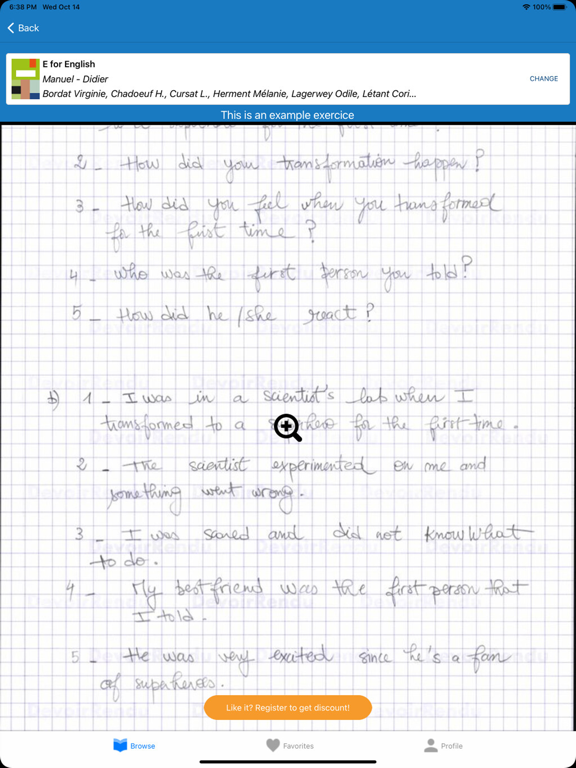 6:38 PM Wed Oct 14
100%
Back
E for English
Manuel - Didier
Bordat Virginie, Chadoeuf H., Cursat L., Herment Mélanie, Lagerwey Odile, Létant Cori...
CHANGE
This is an example exercice
2 - How did you transformation happen?
3 - How did you feel when you transformed
for the first time?
4 - Who was the first person you told?
5 - How did he/she react?
b) 1 - I was in a scientist's lab when I
transformed to a superhero for the first time.
2 - The scientist experimented on me and
something went wrong.
3 - I was scared and did not know what
to do.
4 - My best friend was the first person that
I told.
5 - He was very excited since he's a fan
of superheroes.
Like it? Register to get discount!
Browse
Favorites
Profile